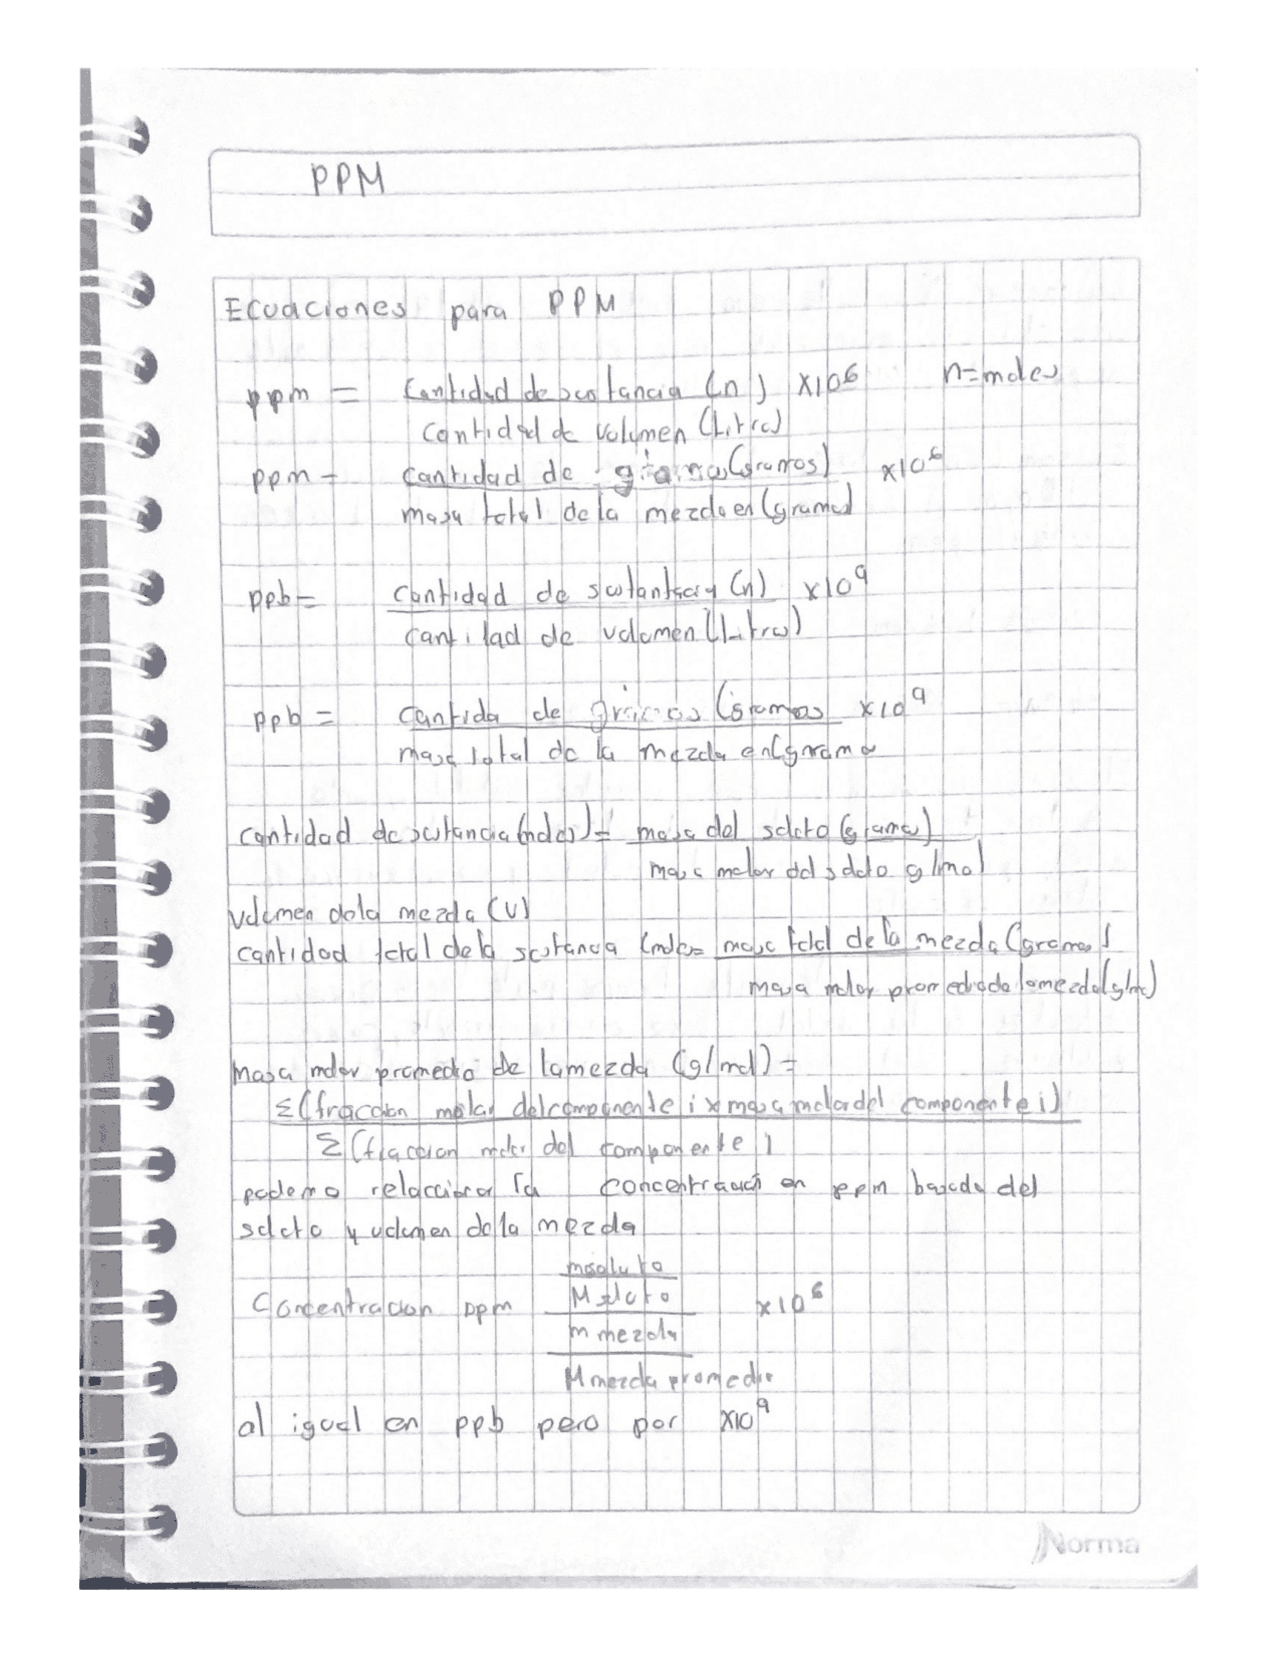 PPM
Ecuaciones para PPM
ppm = Cantidad de sustancia (n) x10^6 n=moles
cantidad de volumen (Litro)
ppm = cantidad de (gramos) x10^6
masa total de la mezcla en (gramos)
ppb = cantidad de sustancia (n) x10^9
cantidad de volumen (Litros)
ppb = cantida de (gramos x10^9
masa total de la mezcla en (gramo
cantidad de sustancia (moles) = masa del soluto (gramo)
masa molar del soluto g/mol
volumen de la mezcla (V)
cantidad total de la sustancia (moles = masa total de la mezcla (gramos)
masa molar promedio de la mezcla (g/mol)
masa molar promedio de la mezcla (g/mol) =
Σ(fraccion molar del componente i x masa molar del componente i)
Σ(fraccion molar del componente )
podemo relaccionar la concentración en ppm basada del
soluto y volumen de la mezcla
msoluto
Concentracion ppm Msoluto x10^6
m mezcla
M mezcla promedio
al igual en ppb pero por x10^9
Norma